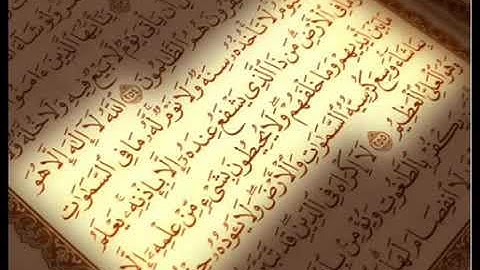 يَٰٓأَيُّهَا ٱلَّذِينَ ءَامَنُوٓا۟
أَن يَأْتِىَ يَوْمٌ لَّا بَيْعٌ فِيهِ وَلَا خُلَّةٌ وَلَا
هُمُ ٱلظَّٰلِمُونَ ٢٥٤ ٱللَّهُ لَآ إِلَٰهَ إِلَّا هُوَ
لَا تَأْخُذُهُۥ سِنَةٌ وَلَا نَوْمٌ لَّهُۥ مَا فِى ٱلسَّمَٰوَٰتِ
ٱلْأَرْضِ مَن ذَا ٱلَّذِى يَشْفَعُ عِندَهُۥٓ إِلَّا بِإِذْنِهِۦ يَعْلَمُ
أَيْدِيهِمْ وَمَا خَلْفَهُمْ وَلَا يُحِيطُونَ بِشَىْءٍ مِّنْ عِلْمِهِۦٓ إِلَّا
شَآءَ وَسِعَ كُرْسِيُّهُ ٱلسَّمَٰوَٰتِ وَٱلْأَرْضَ وَلَا يَـُٔودُهُۥ
وَهُوَ ٱلْعَلِىُّ ٱلْعَظِيمُ ٢٥٥ لَآ إِكْرَاهَ فِى ٱلدِّينِ قَد تَّبَيَّنَ
يَكْفُرْ بِٱلطَّٰغُوتِ وَيُؤْمِنۢ
لَا ٱنفِصَامَ لَهَا